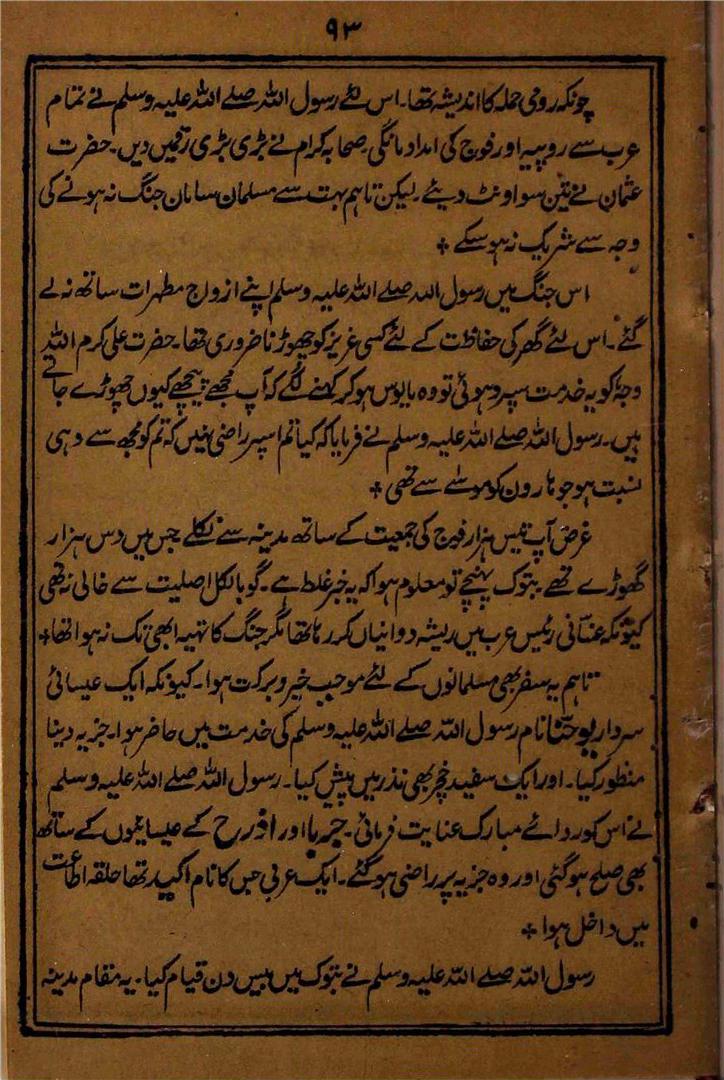 ۹۳
چونکہ رومی حملہ کا اندیشہ تھا۔ اس لئے رسول اللہ صلے اللہ علیہ وسلم نے تمام
عرب سے روپیہ اور فوج کی امداد مانگی۔ صحابہ کرام نے بڑی بڑی رقمیں دیں۔ حضرت
عثمان نے تین سو اونٹ دیئے۔ لیکن تاہم بہت سے مسلمان سامان جنگ نہ ہونے کی
وجہ سے شریک نہ ہو سکے +
اس جنگ میں رسول اللہ صلے اللہ علیہ وسلم اپنے ازواج مطہرات ساتھ نہ لے
گئے۔ اس لئے گھر کی حفاظت کے لئے کسی عزیز کو چھوڑنا ضروری تھا۔ حضرت علی کرم اللہ
وجہٗ کو یہ خدمت سپرد ہوئی تو وہ مایوس ہو کر کہنے لگے کہ آپ مجھے پیچھے کیوں چھوڑے جاتے
ہیں۔ رسول اللہ صلے اللہ علیہ وسلم نے فرمایا کہ کیا تم اسپر راضی نہیں کہ تم کو مجھ سے وہی
نسبت ہو جو ہارون کو موسےٰ سے تھی +
غرض آپ تیس ہزار فوج کی جمعیت کے ساتھ مدینہ سے نکلے جس میں دس ہزار
گھوڑے تھے۔ تبوک پہنچے تو معلوم ہوا کہ یہ خبر غلط ہے۔ گو بالکل اصلیت سے خالی نہ تھی
کیونکہ غسانی رئیس عرب میں ریشہ دوانیاں کر رہا تھا مگر جنگ کا تہیہ ابھی تک نہ ہوا تھا +
تاہم یہ سفر بھی مسلمانوں کے لئے موجب خیر و برکت ہوا۔ کیونکہ ایک عیسائی
سردار یوحنا نام رسول اللہ صلے اللہ علیہ وسلم کی خدمت میں حاضر ہوا۔ جزیہ دینا
منظور کیا۔ اور ایک سفید خچر بھی نذر میں پیش کیا۔ رسول اللہ صلے اللہ علیہ وسلم
نے اس کو ردائے مبارک عنایت فرمائی۔ جربا اور اذرح کے عیسائیوں کے ساتھ
بھی صلح ہو گئی اور وہ جزیہ پر راضی ہو گئے۔ ایک عربی جس کا نام اکیدر تھا حلقہ اطاعت
میں داخل ہوا +
رسول اللہ صلے اللہ علیہ وسلم نے تبوک میں بیس دن قیام کیا۔ یہ مقام مدینہ